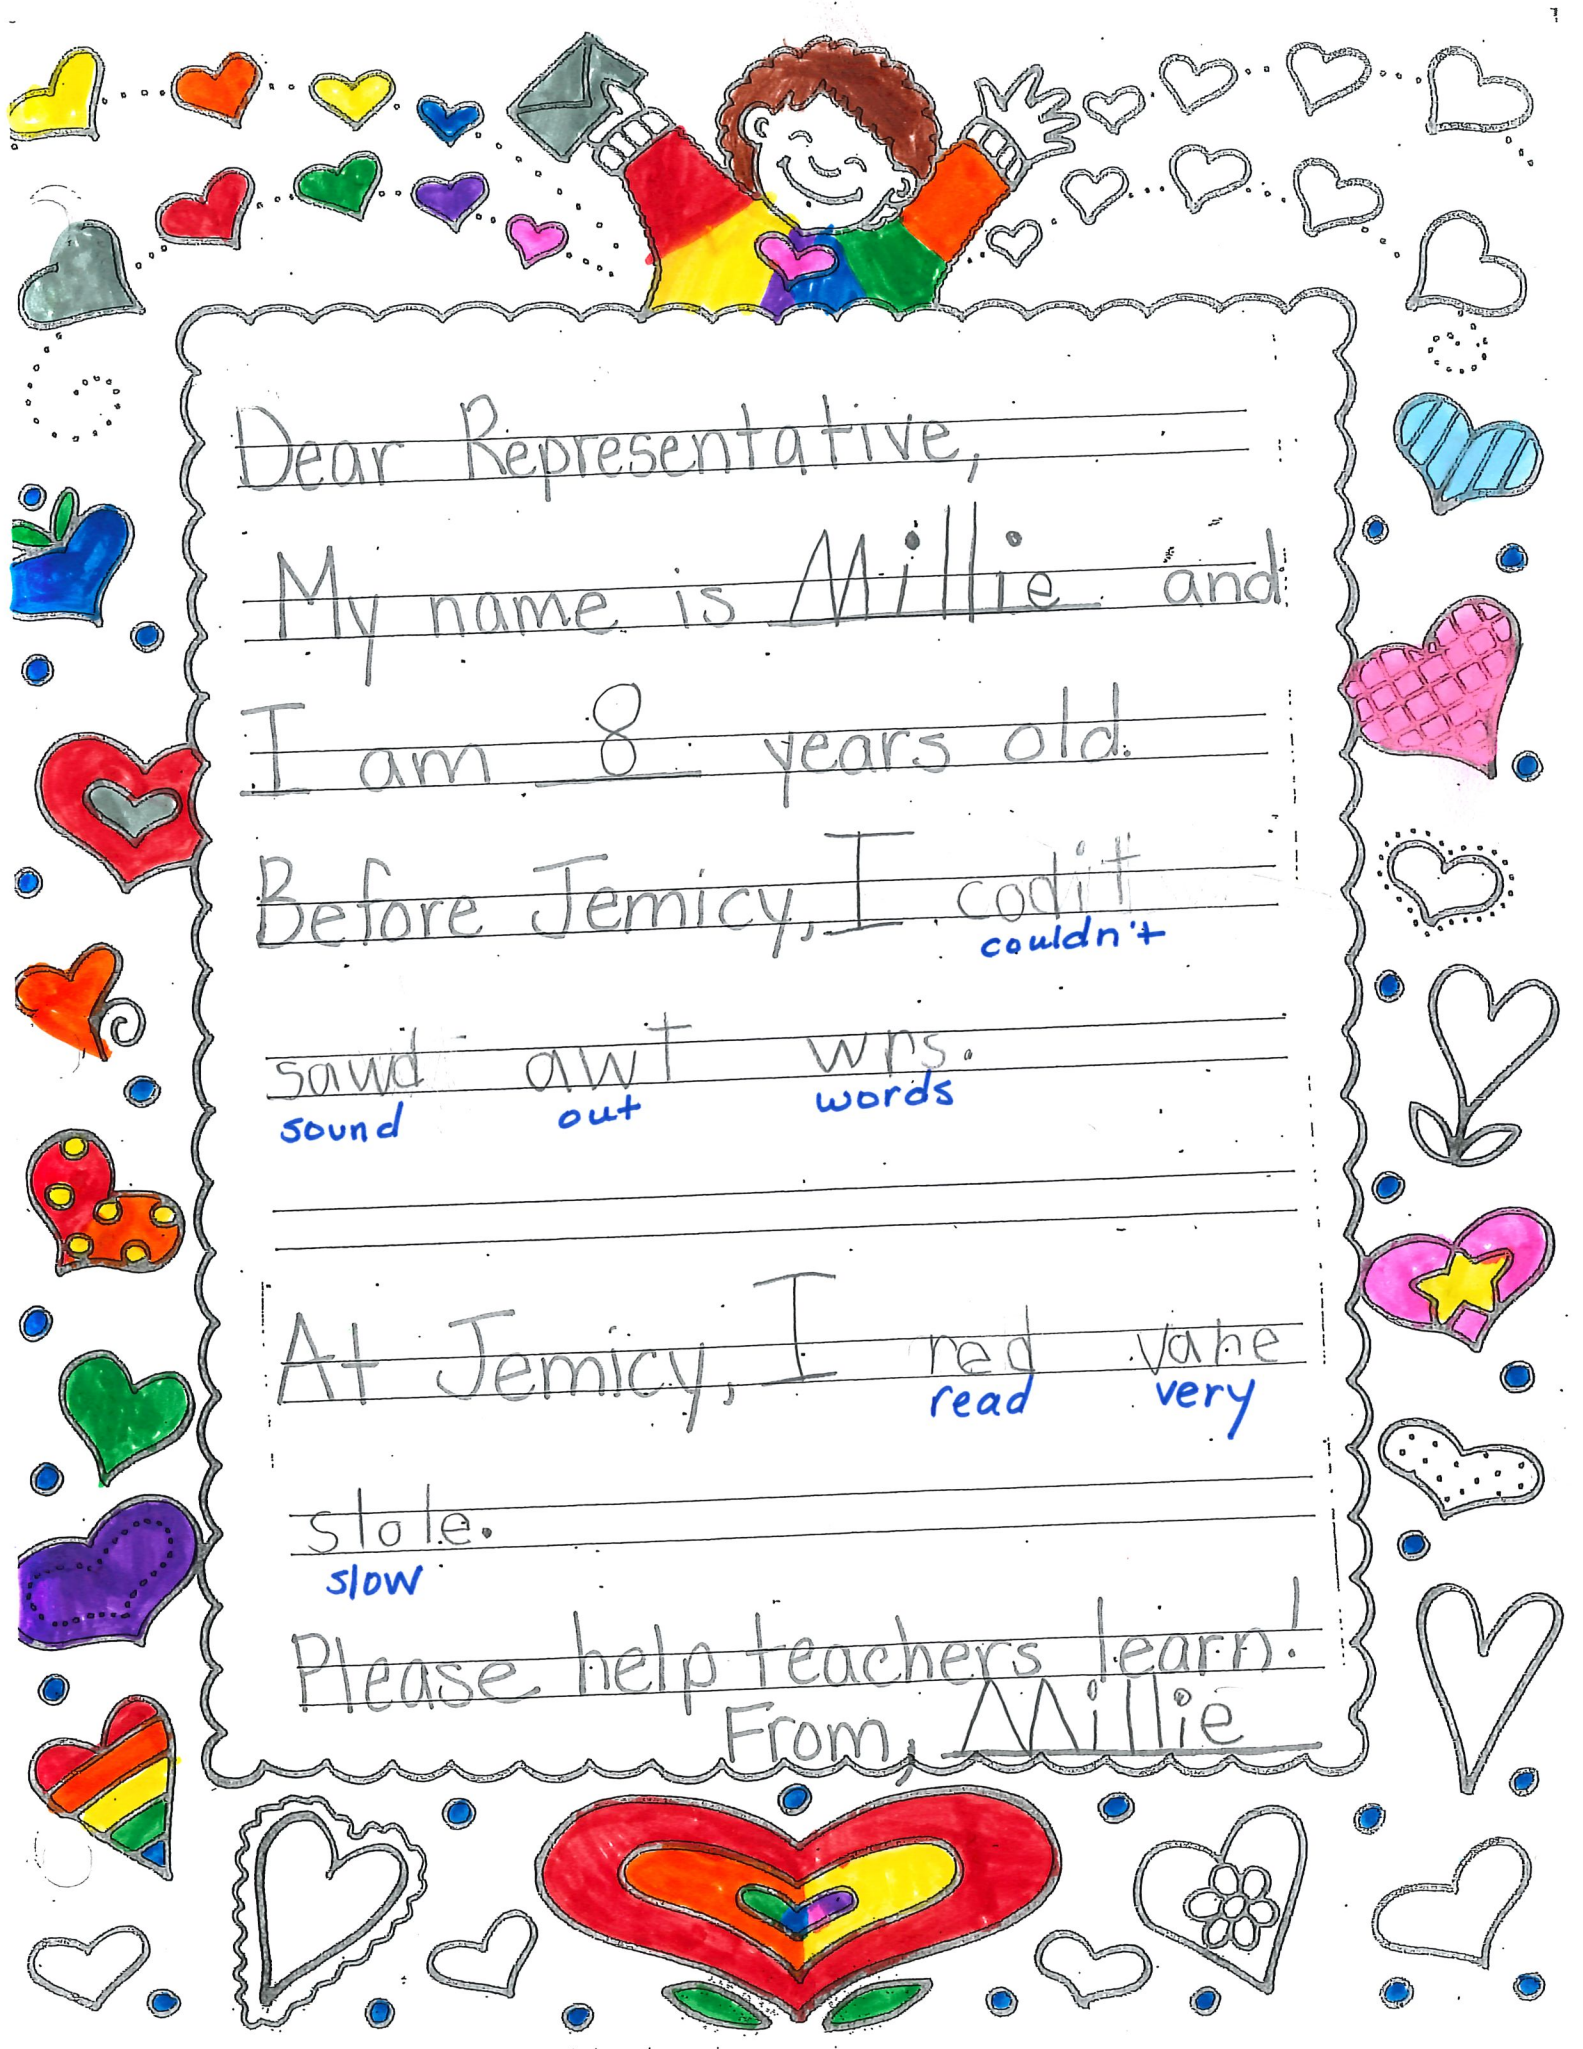 Dear Representative,
My name is Millie and
I am 8 years old.
Before Jemicy, I codit
couldn't
sawd awt wrs.
sound out words
At Jemicy, I red vare
read very
slole.
slow
Please help teachers learn!
From, Millie